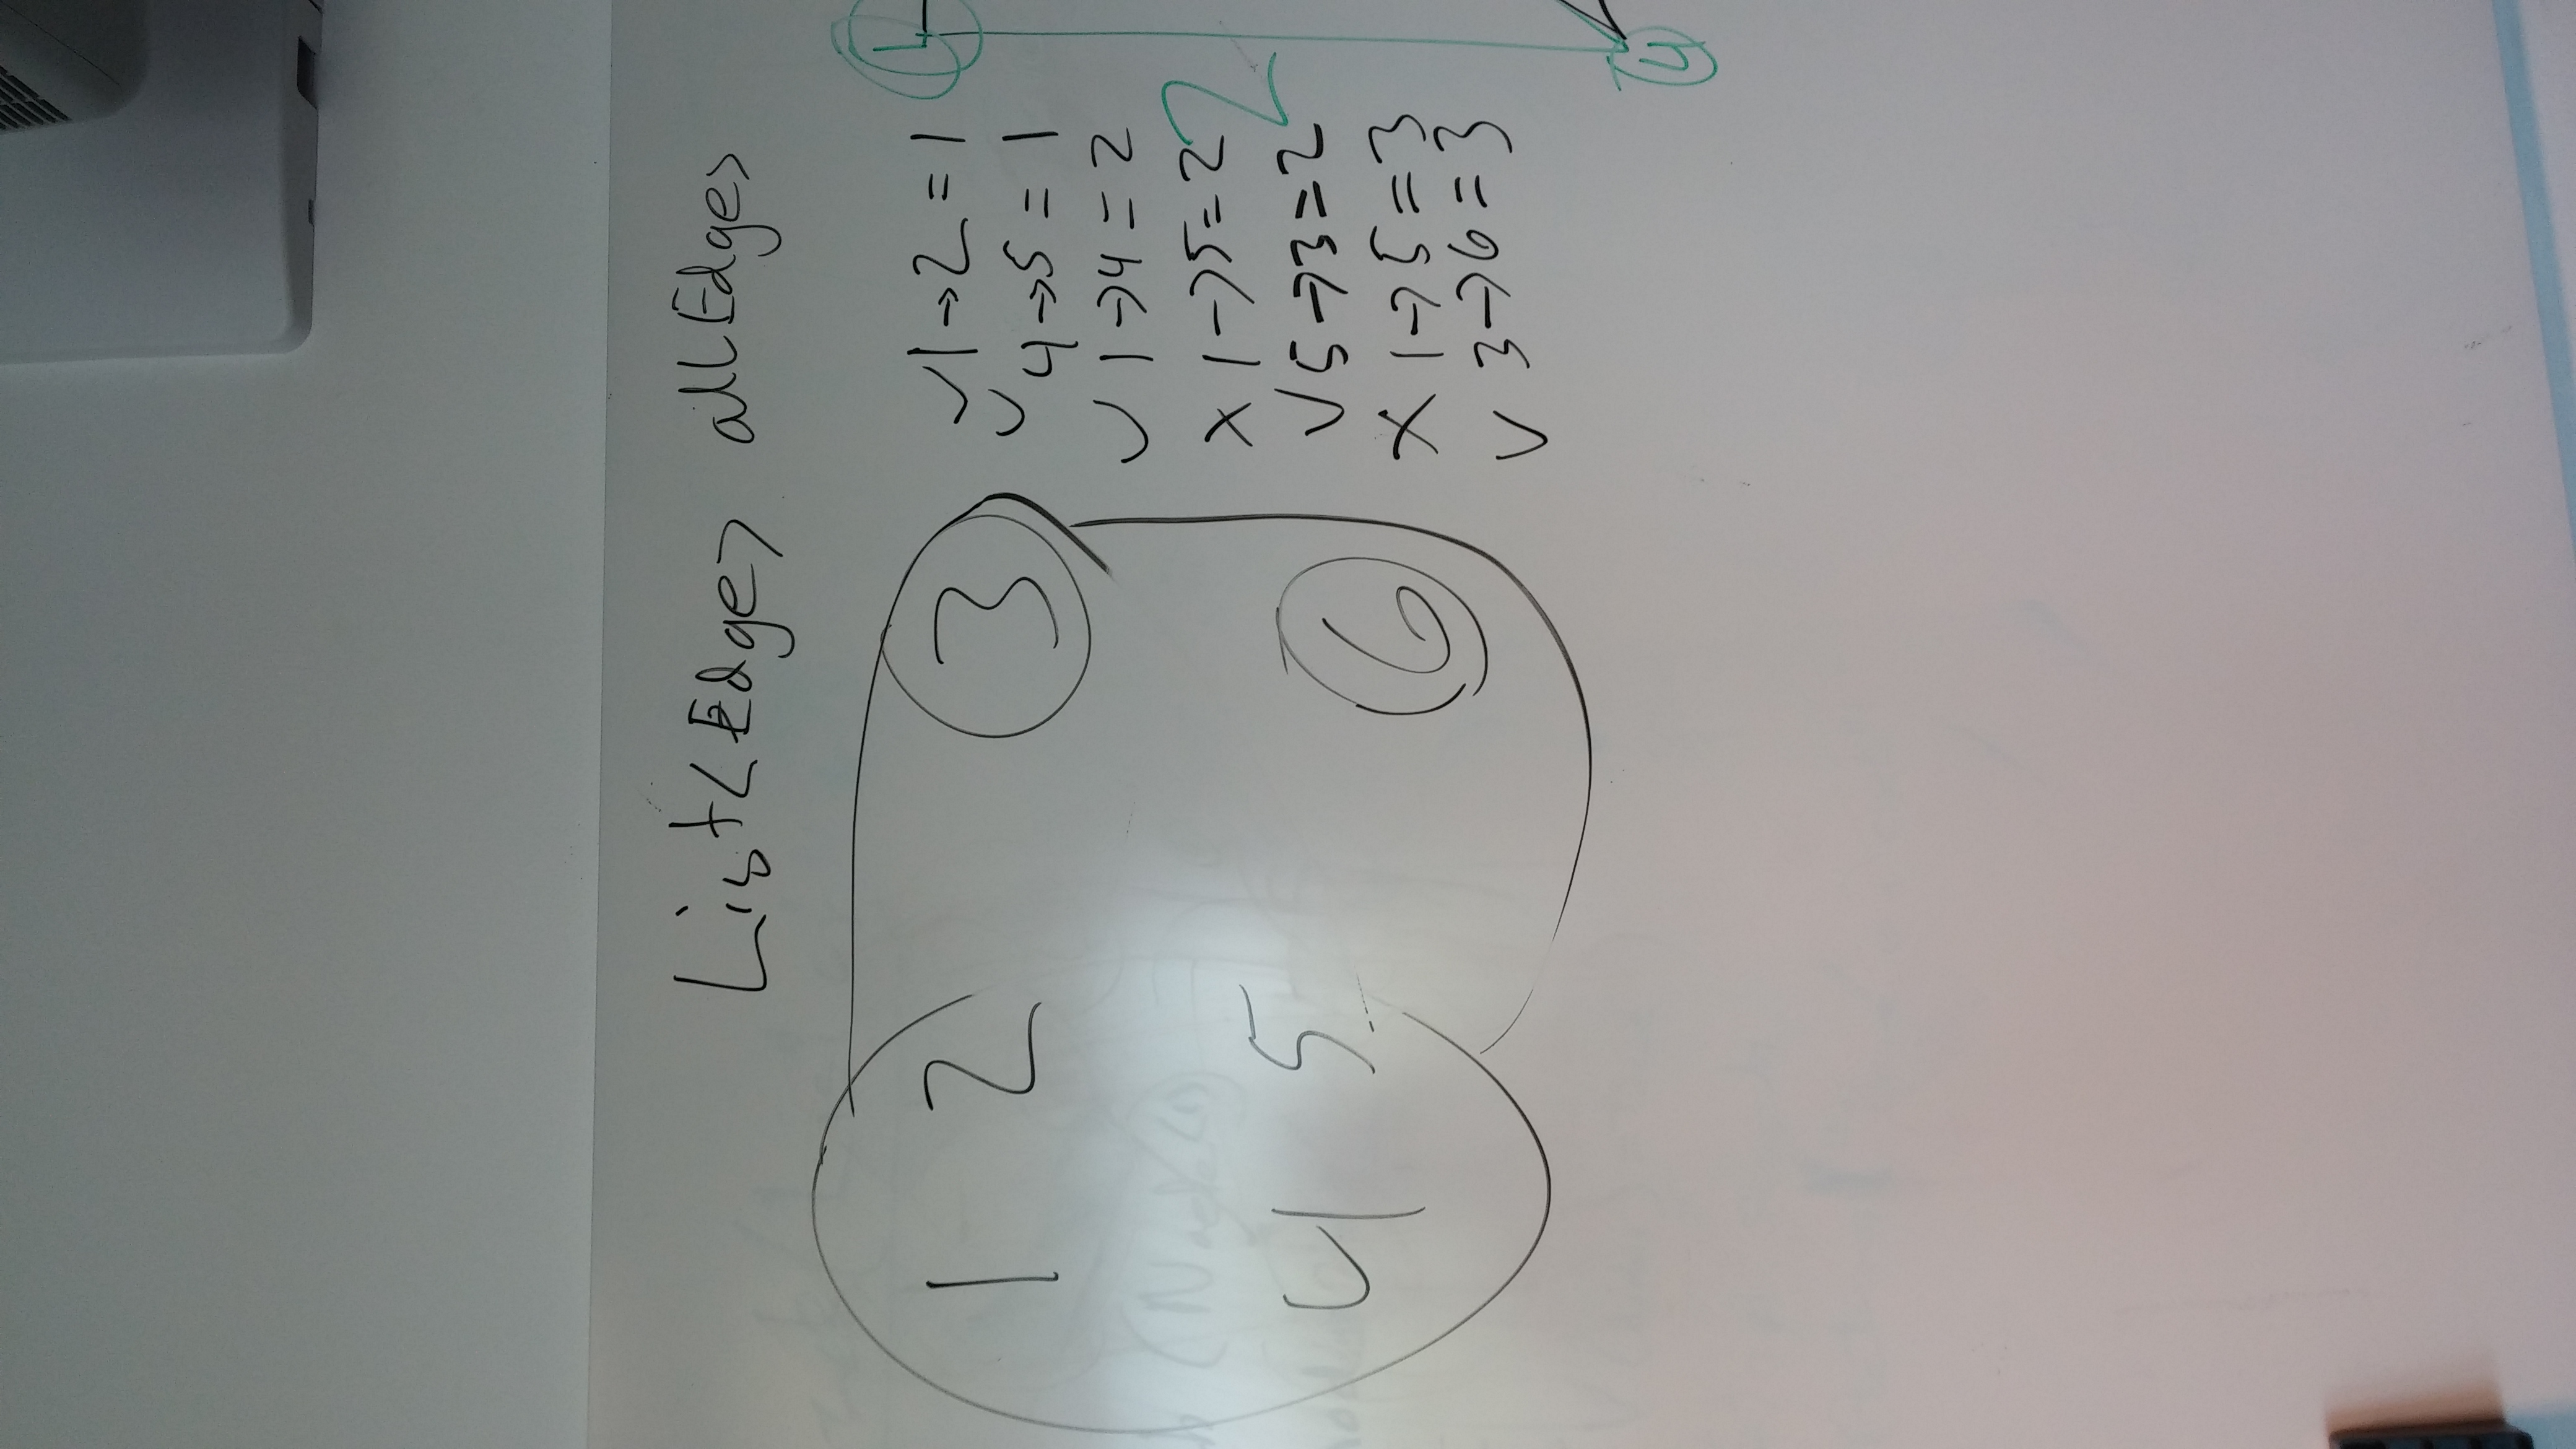 List<Edge> allEdges
1 2 3
4 5 6
✓ 1→2 = 1
✓ 4→5 = 1
✓ 1→4 = 2
x 1→5 = 2
✓ 5→3 = 2
x 1→5 = 3
✓ 3→6 = 3
2
4